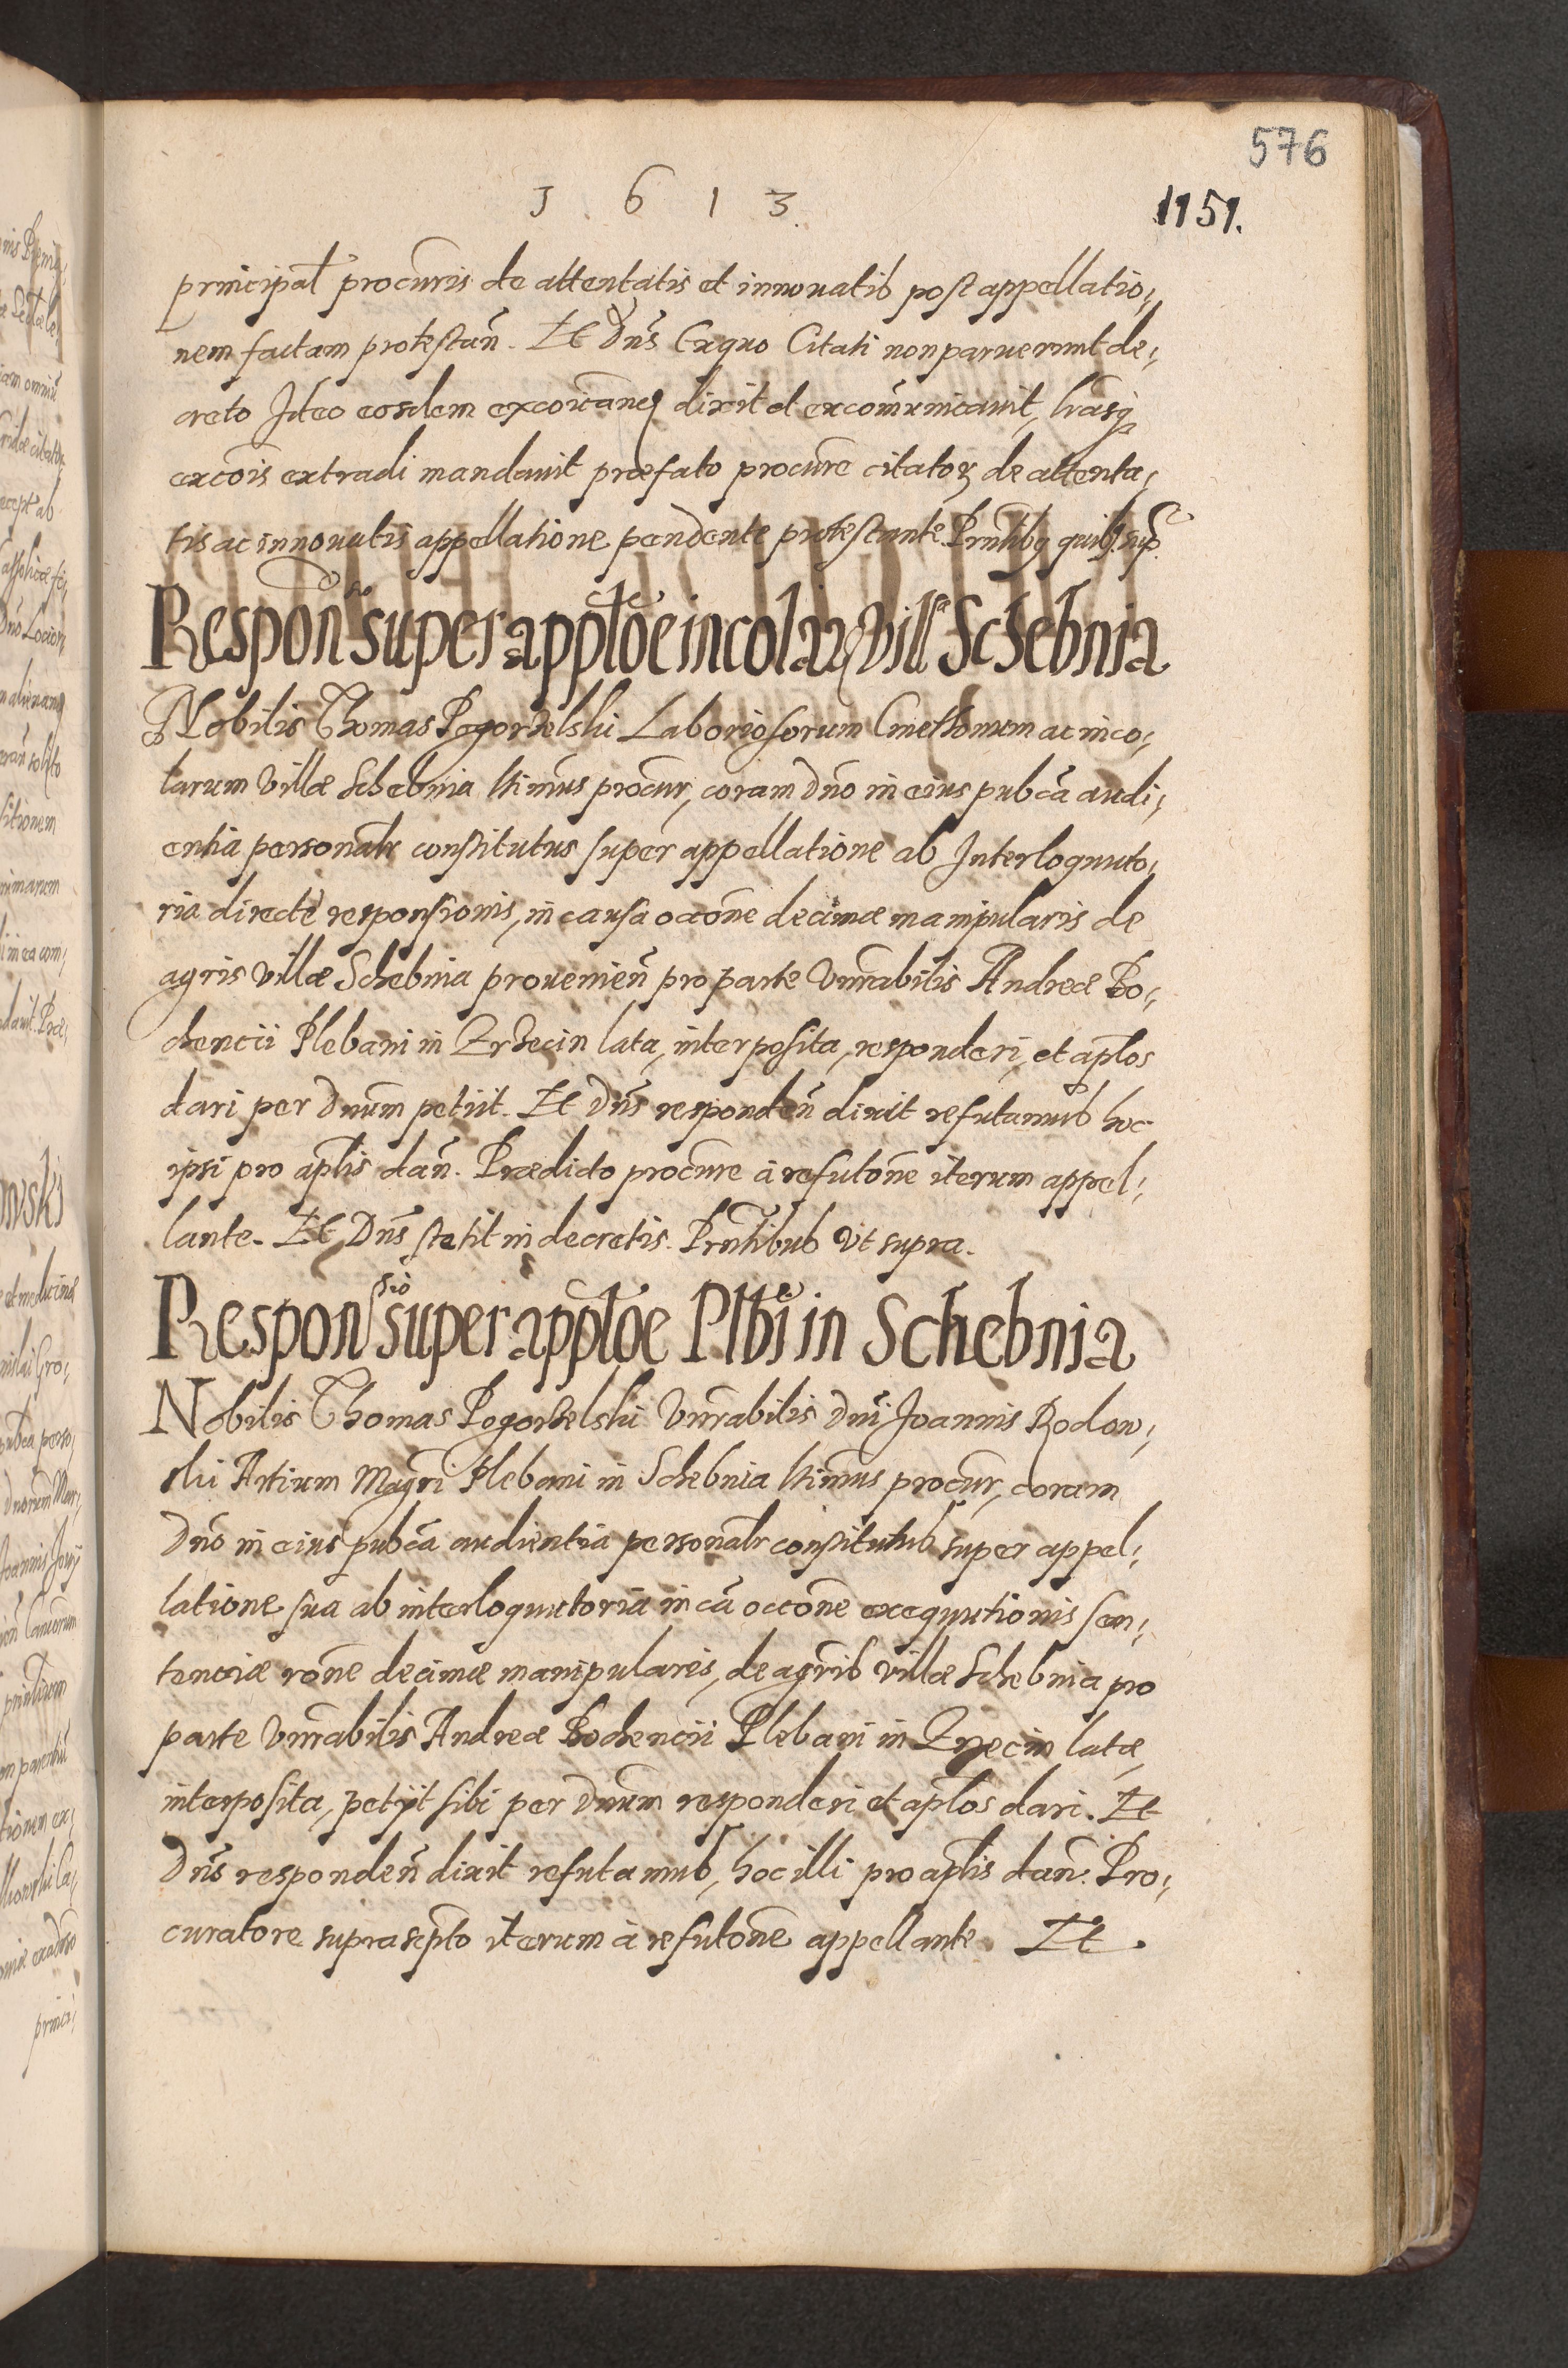 576
1613
1151.
principal procuris de attentatis et innouatis post appellatio;
nem factam protestan̄. Et Dn̄s Exquo Citati non paruerunt de;
creto Ideo eosdem excoicandꝭ dixit et excōmunicauit, lrāsq́
excōis extradi mandauit præfato procure citatoꝝ de attenta;
tis ac innouatis appellatione pendente protestante. Prn̄tibꝯ quibꝯ sup̄.
Respon̄sio super appl̄oe incolaꝝ vill̄ Schebnia
Nobilis Thomas Pogorzelski Laboriosorum Cmethonum ac inco;
larum villæ Schebnia lt̄imus procur, coram Dn̄o in eius pub̄ca audi;
entia personalr constitutus super appellatione ab Interloquuto;
ria directe responsionis, in causa occōne decimæ manipularis de
agris villæ Schebnia prouenien̄ pro parte Vnrabilis Andreæ Bo;
chencii Plebani in Zrzecin lata, interposita, responderi, et apl̄os
dari per Dnum petiit. Et Dn̄s responden̄ dixit refutamus hoc
ipsi pro apl̄is dan̄. Prædicto procure à refutōne iterum appel;
lante. Et Dn̄s stetit in decretis. Prn̄tibus vt supra.
Responsio super appl̄oe Pl̄bi in Schebnia
Nobilis Thomas Pogorzelski Vnrabilis Dn̄i Joannis Rodow;
ski Artium Magr̄i Plebani in Schebnia lt̄imus procur, coram
Dn̄o in eius pub̄ca audientia personalr constitutus super appel;
latione sua ab interloquutoria in cā occōne exequutionis sen;
tenciæ rōne decimæ manipularis, de agris villæ Schebnia pro
parte Vnrabilis Andreæ Bochencii Plebani in Zrzecin latæ,
interposita, petijt sibi per Dnum responderi et apl̄os dari. Et
Dn̄s responden̄ dixit refutamus, hoc illi pro apl̄is dan̄. Pro;
curatore suprascpto iterum à refutōne appellante. Et.